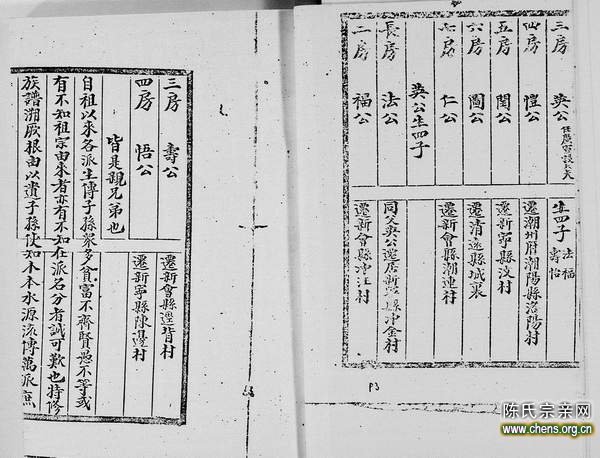 三房 英公 任廣
生四子 法福壽怡
四房 愷公 遷潮州府潮陽縣洛陽村
五房 閏公 遷新寧縣汶村
六房 圖公 遷清遠縣城裏
七房 仁公 遷新會縣潮連村
英公生四子
長房 法公 同父英公遷居新寧縣冲金村
二房 福公 遷新會縣冲村
P3
三房 壽公 遷新會縣背村
四房 悟公 遷新寧縣陳邊村
皆是親兄弟也
自祖以來各派生傳子孫衆多貧富不齊賢愚不等或
有不知祖宗由來者亦有不知在派名分者誠可歎也特修
族譜溯厥根由以子孫使知木本水源流傳萬派庶
陈氏宗亲网
www.chens.org.cn